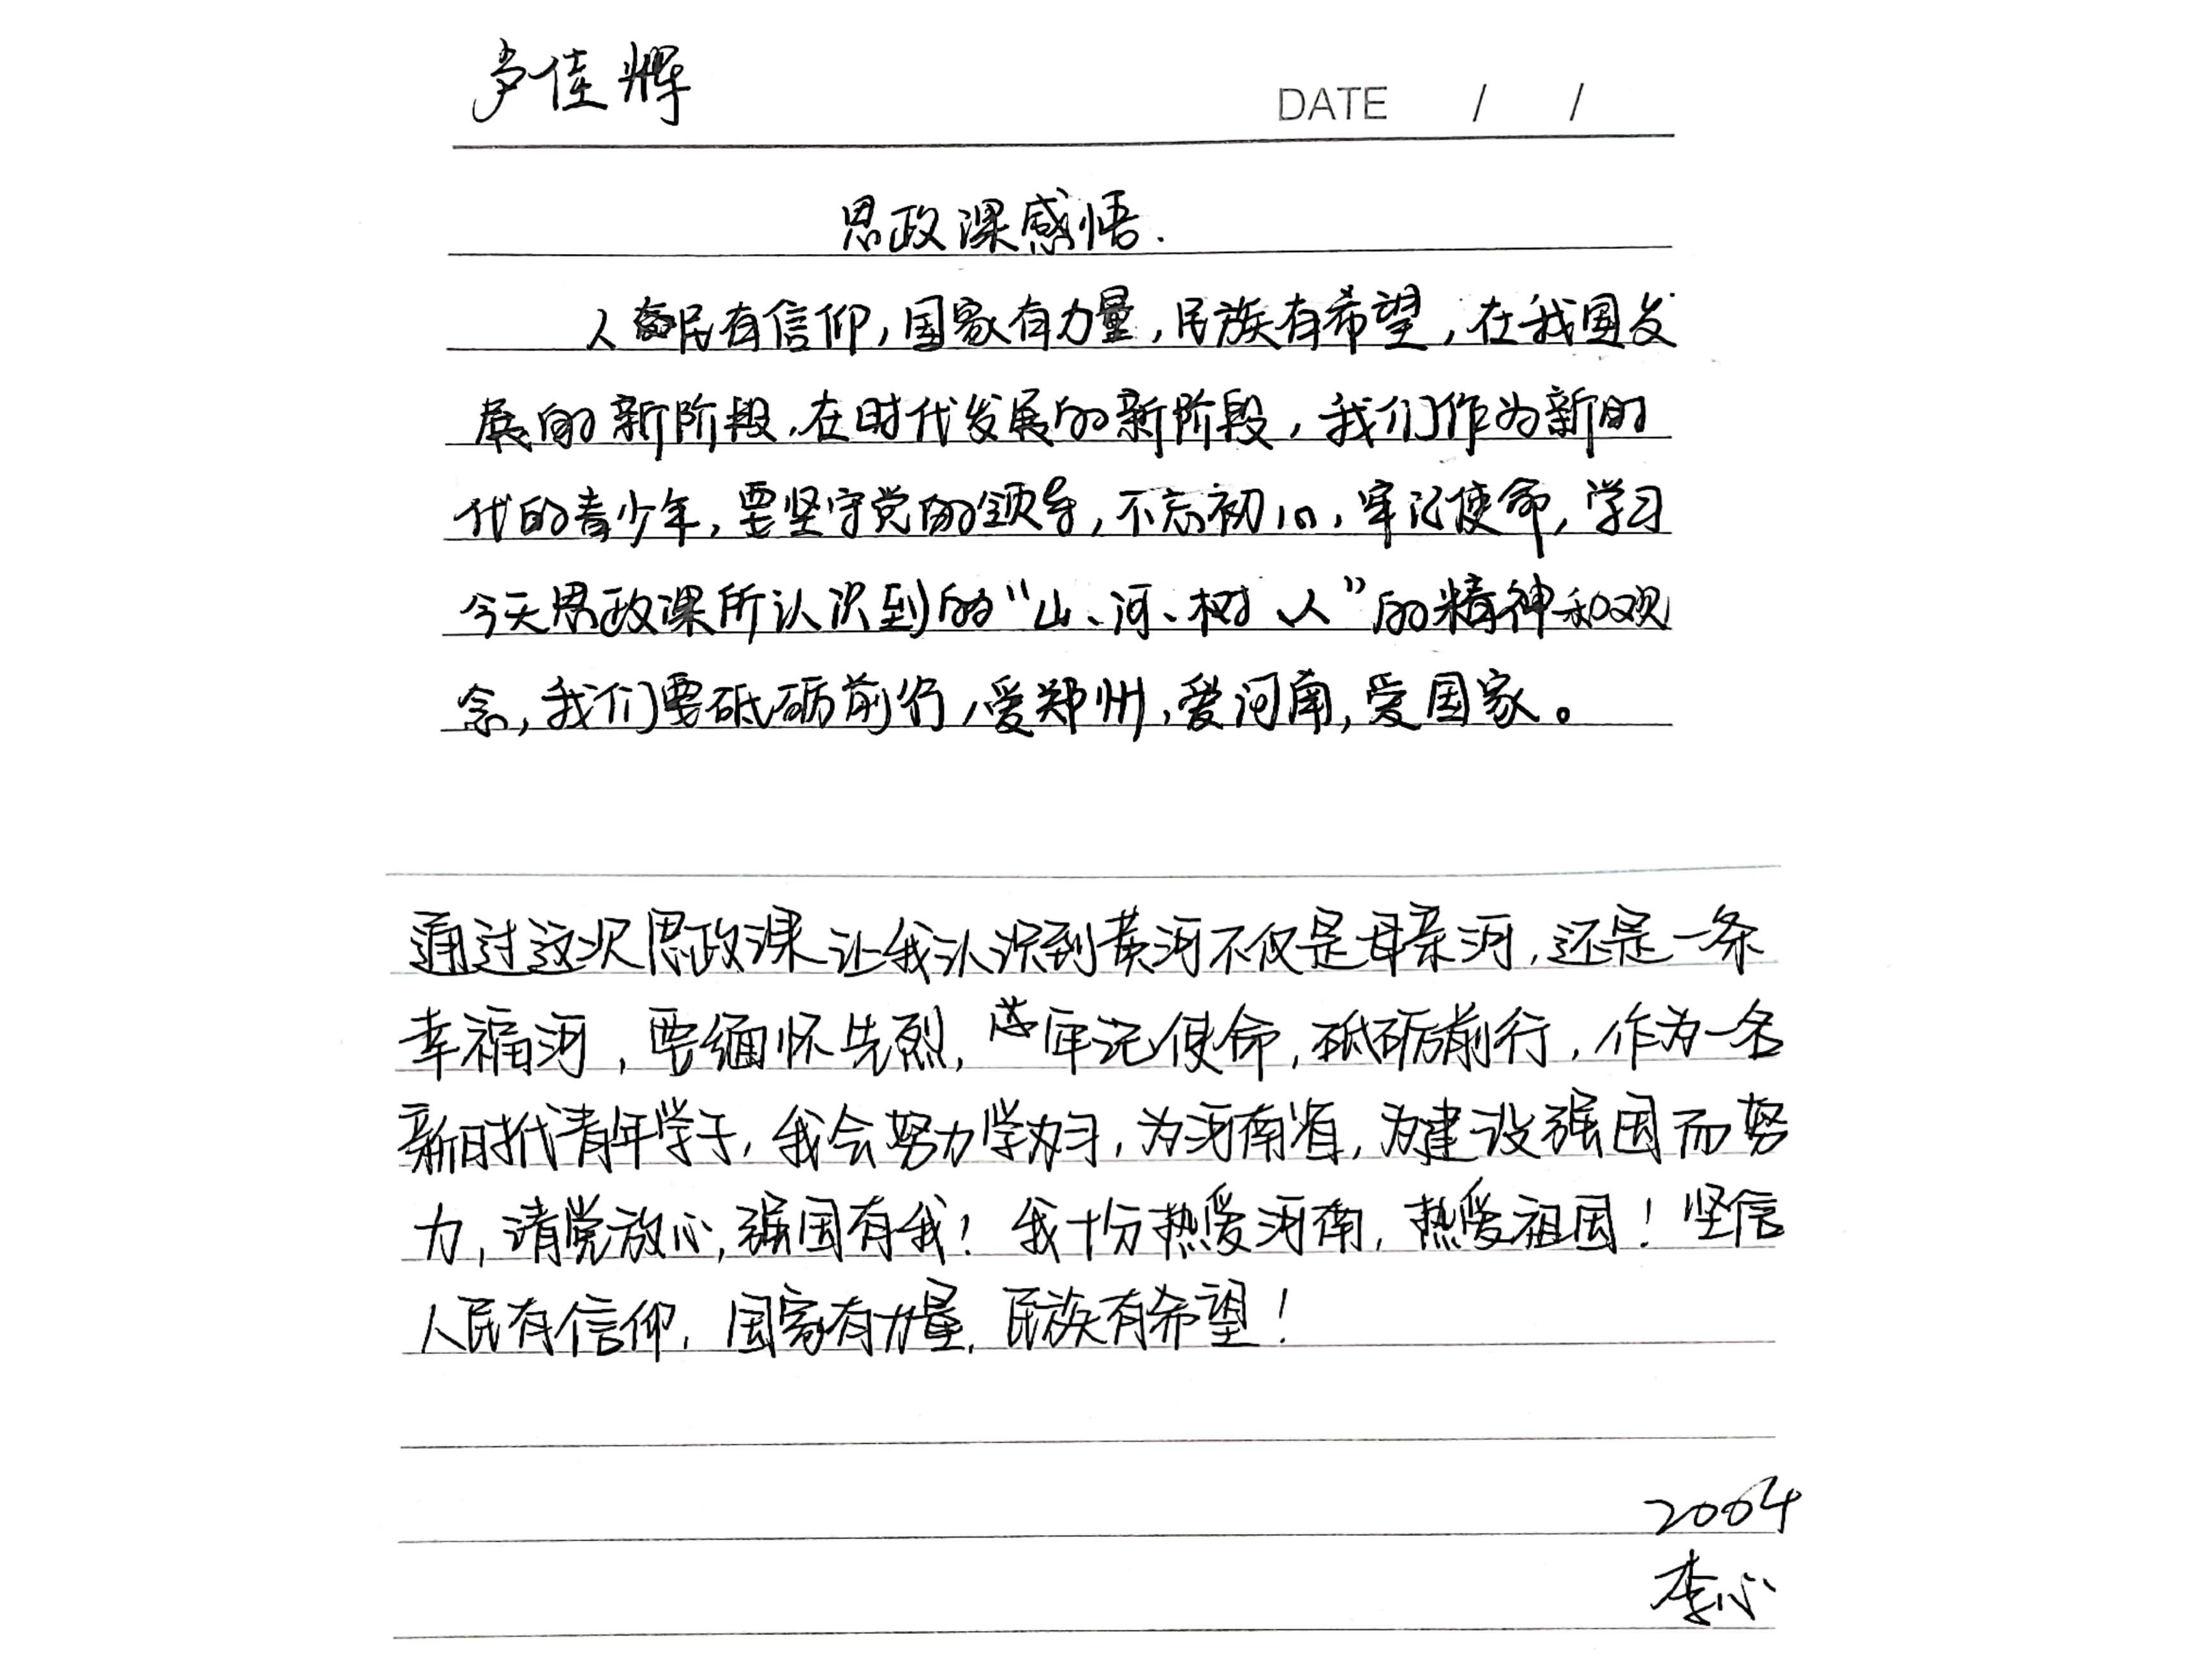 卢佳辉
DATE / /
思政课感悟.
人民有信仰,国家有力量,民族有希望,在我国发
展的新阶段,在时代发展的新阶段,我们作为新时
代的青少年,要坚守党的领导,不忘初心,牢记使命,学习
今天思政课所认识到的“山、河、树、人”的精神和观
念,我们要砥砺前行,爱郑州,爱河南,爱国家。
通过这次思政课让我认识到黄河不仅是母亲河,还是一条
幸福河,要缅怀先烈,牢记使命,砥砺前行,作为一名
新时代青年学子,我会努力学习,为河南省,为建设强国而努
力,请党放心,强国有我!我十分热爱河南,热爱祖国!坚信
人民有信仰,国家有力量,民族有希望!
2004
李心